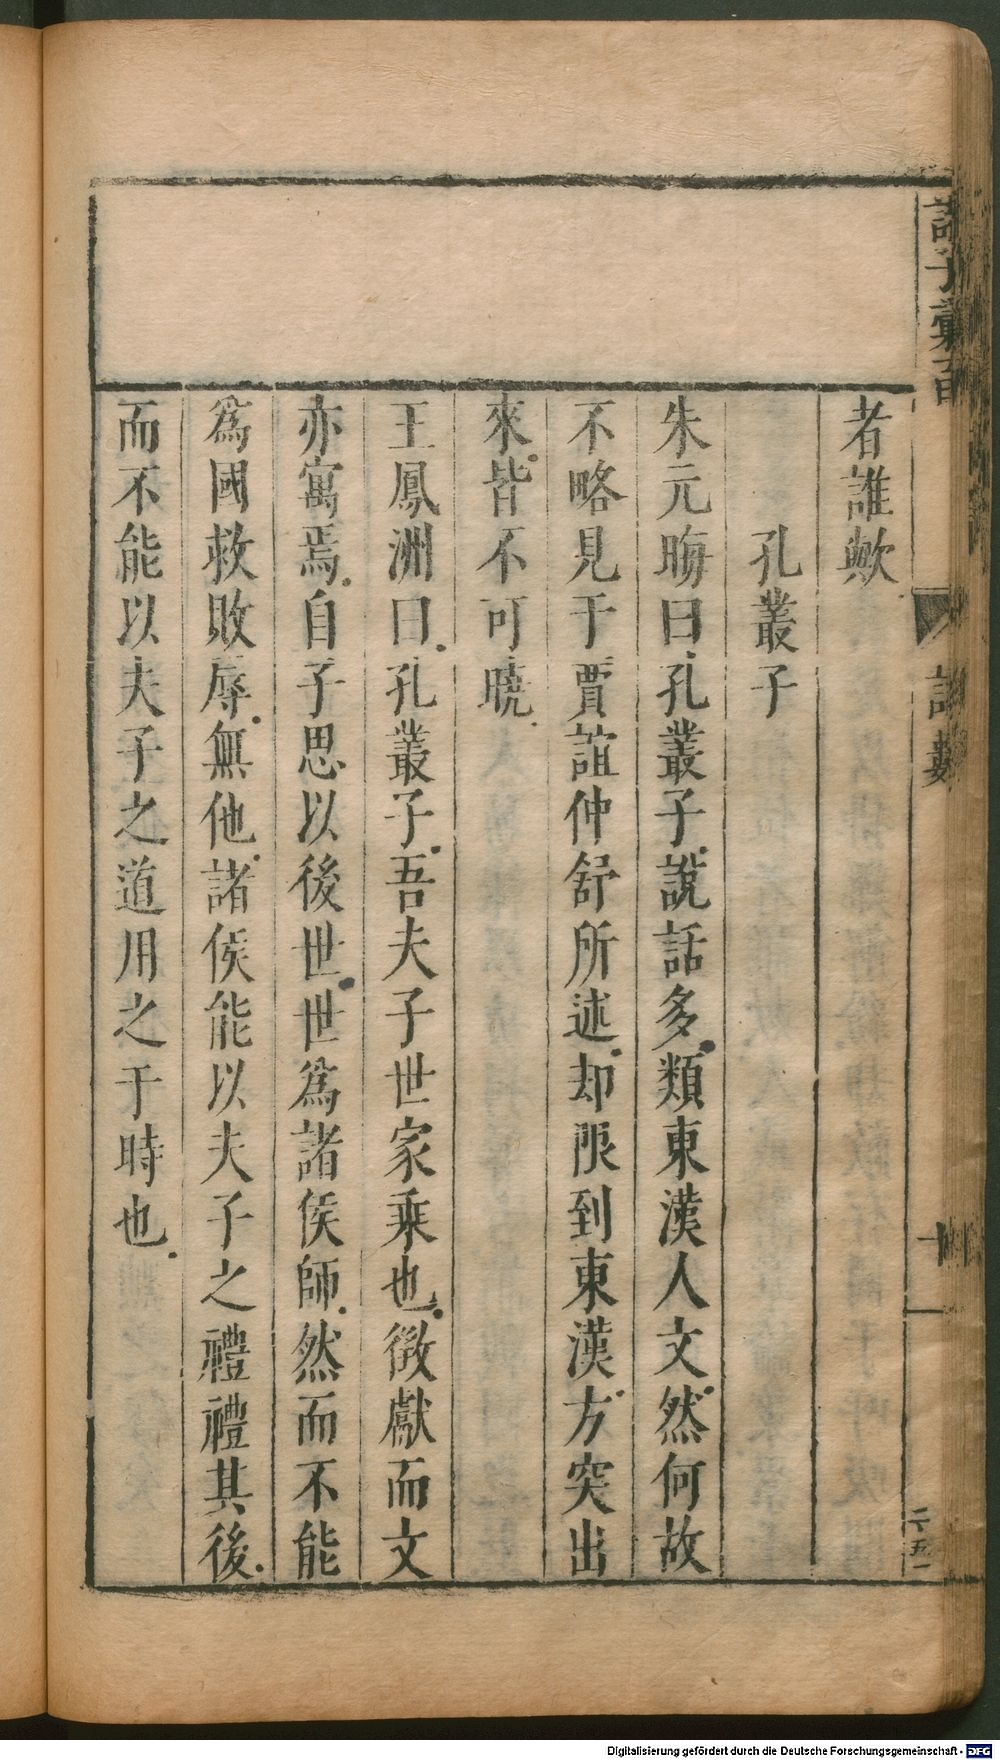 者誰歟
孔叢子
朱元晦曰孔叢子說話多類東漢人文然何故
不略見于賈誼仲舒所述却限到東漢方突出
來皆不可曉
王鳳洲曰孔叢子吾夫子世家乘也徴獻而文
亦寓焉自子思以後世世爲諸侯師然而不能
爲國救敗辱無他諸侯能以夫子之禮禮其後
而不能以夫子之道用之于時也
十
二五一
Digitalisierung gefördert durch die Deutsche Forschungsgemeinschaft - DFG